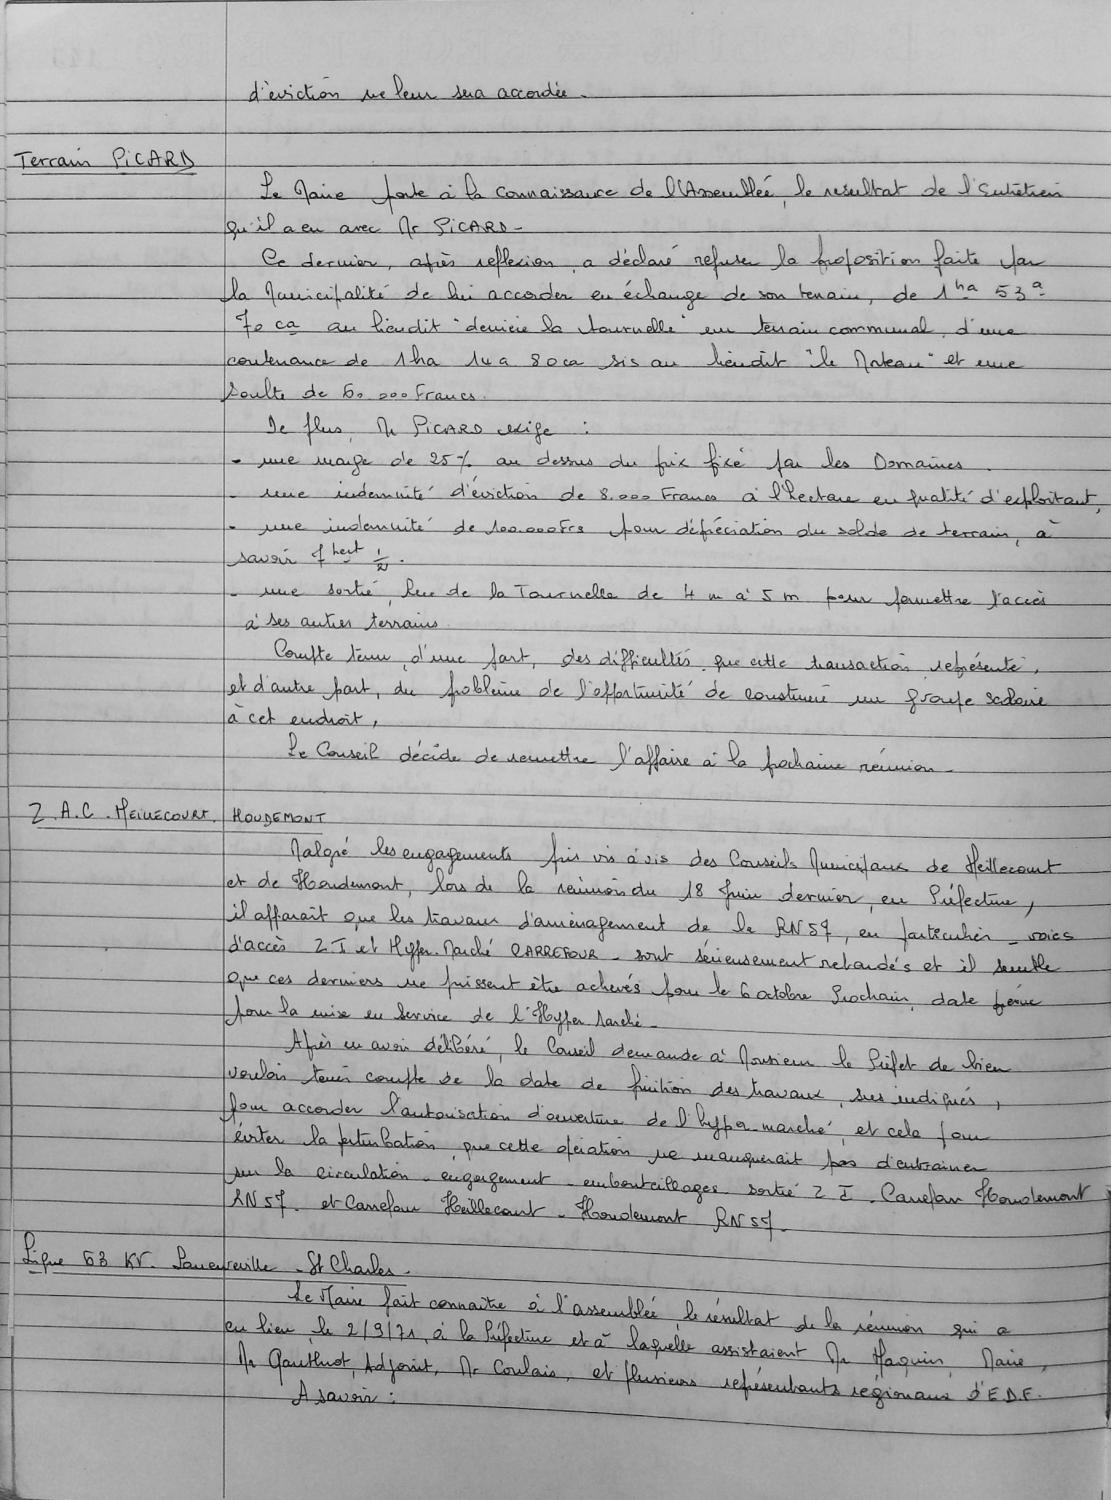 d'éviction ne leur sera accordée.
Terrain PICARD
Le Maire porte à la connaissance de l'Assemblée, le resultat de l'Entretien
qu'il a eu avec Mr PICARD-
Ce dernier, après reflexion, a déclaré refuser la proposition faite par
la Municipalité de lui accorder en échange de son terrain, de 1 ha 53 a
70 ca au lieudit "derrière la tournelle" un terrain communal, d'une
contenance de 1ha 14 a 80 ca sis au lieudit "le Moteau" et une
soulte de 60.000 Francs.
De plus, Mr PICARD exige :
- une marge de 25% au dessus du prix fixé par les Domaines.
- une indemnité d'éviction de 8.000 Francs à l'hectare en qualité d'exploitant,
- une indemnité de 100.000 Frs pour dépréciation du solde de terrain, à
savoir 7 hect 1/2.
- une sortie, Rue de la Tournelle de 4 m à 5 m pour permettre l'accès
à ses autres terrains.
Compte tenu, d'une part, des difficultés que cette transaction représente,
et d'autre part, du problème de l'opportunité de construire un groupe scolaire
à cet endroit,
Le Conseil décide de remettre l'affaire à la prochaine réunion-
Z.A.C. HEILLECOURT. HOUDEMONT
Malgré les engagements pris vis à vis des Conseils Municipaux de Heillecourt
et de Houdemont, lors de la réunion du 18 Juin dernier, en Préfecture,
il apparait que les travaux d'aménagement de la RN 57, en particulier - voies
d'accès Z I et Hyper-Marché CARREFOUR - sont sérieusement retardés et il semble
que ces derniers ne puissent être achevés pour le 6 octobre Prochain, date prévue
pour la mise en Service de l'Hyper Marché-
Après en avoir délibéré, le Conseil demande à Monsieur le Préfet de bien
vouloir tenir compte de la date de finition des travaux, sus indiqués,
pour accorder l'autorisation d'ouverture de l'hyper-marché, et cela pour
éviter la perturbation que cette opération ne manquerait pas d'entrainer
sur la circulation - engorgement - embouteillages - sortie Z I - Carrefour Houdemont
RN 57 - et Carrefour Heillecourt - Houdemont RN 57-
Ligne 63 KV. Laneuveville - St Charles-
Le Maire fait connaitre à l'assemblée, le résultat de la réunion qui a
eu lieu, le 2/9/71, à la Préfecture et à laquelle assistaient Mr Maquin, Maire,
Mr Gauthrot, Adjoint, Mr Coulais, et plusieurs représentants régionaux d'E.D.F.
A savoir :